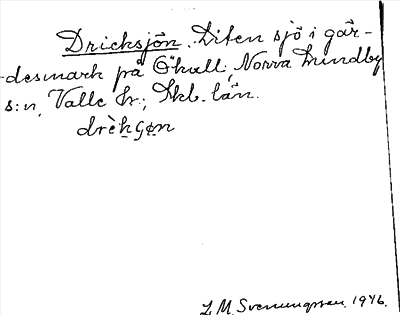 Dricksjön. Liten sjö i går-
desmark på Ökull, Norra Lundby
s:n, Valle hr; Skb. län.
drèḵꞔøn
L. M. Svenungsson. 1946.